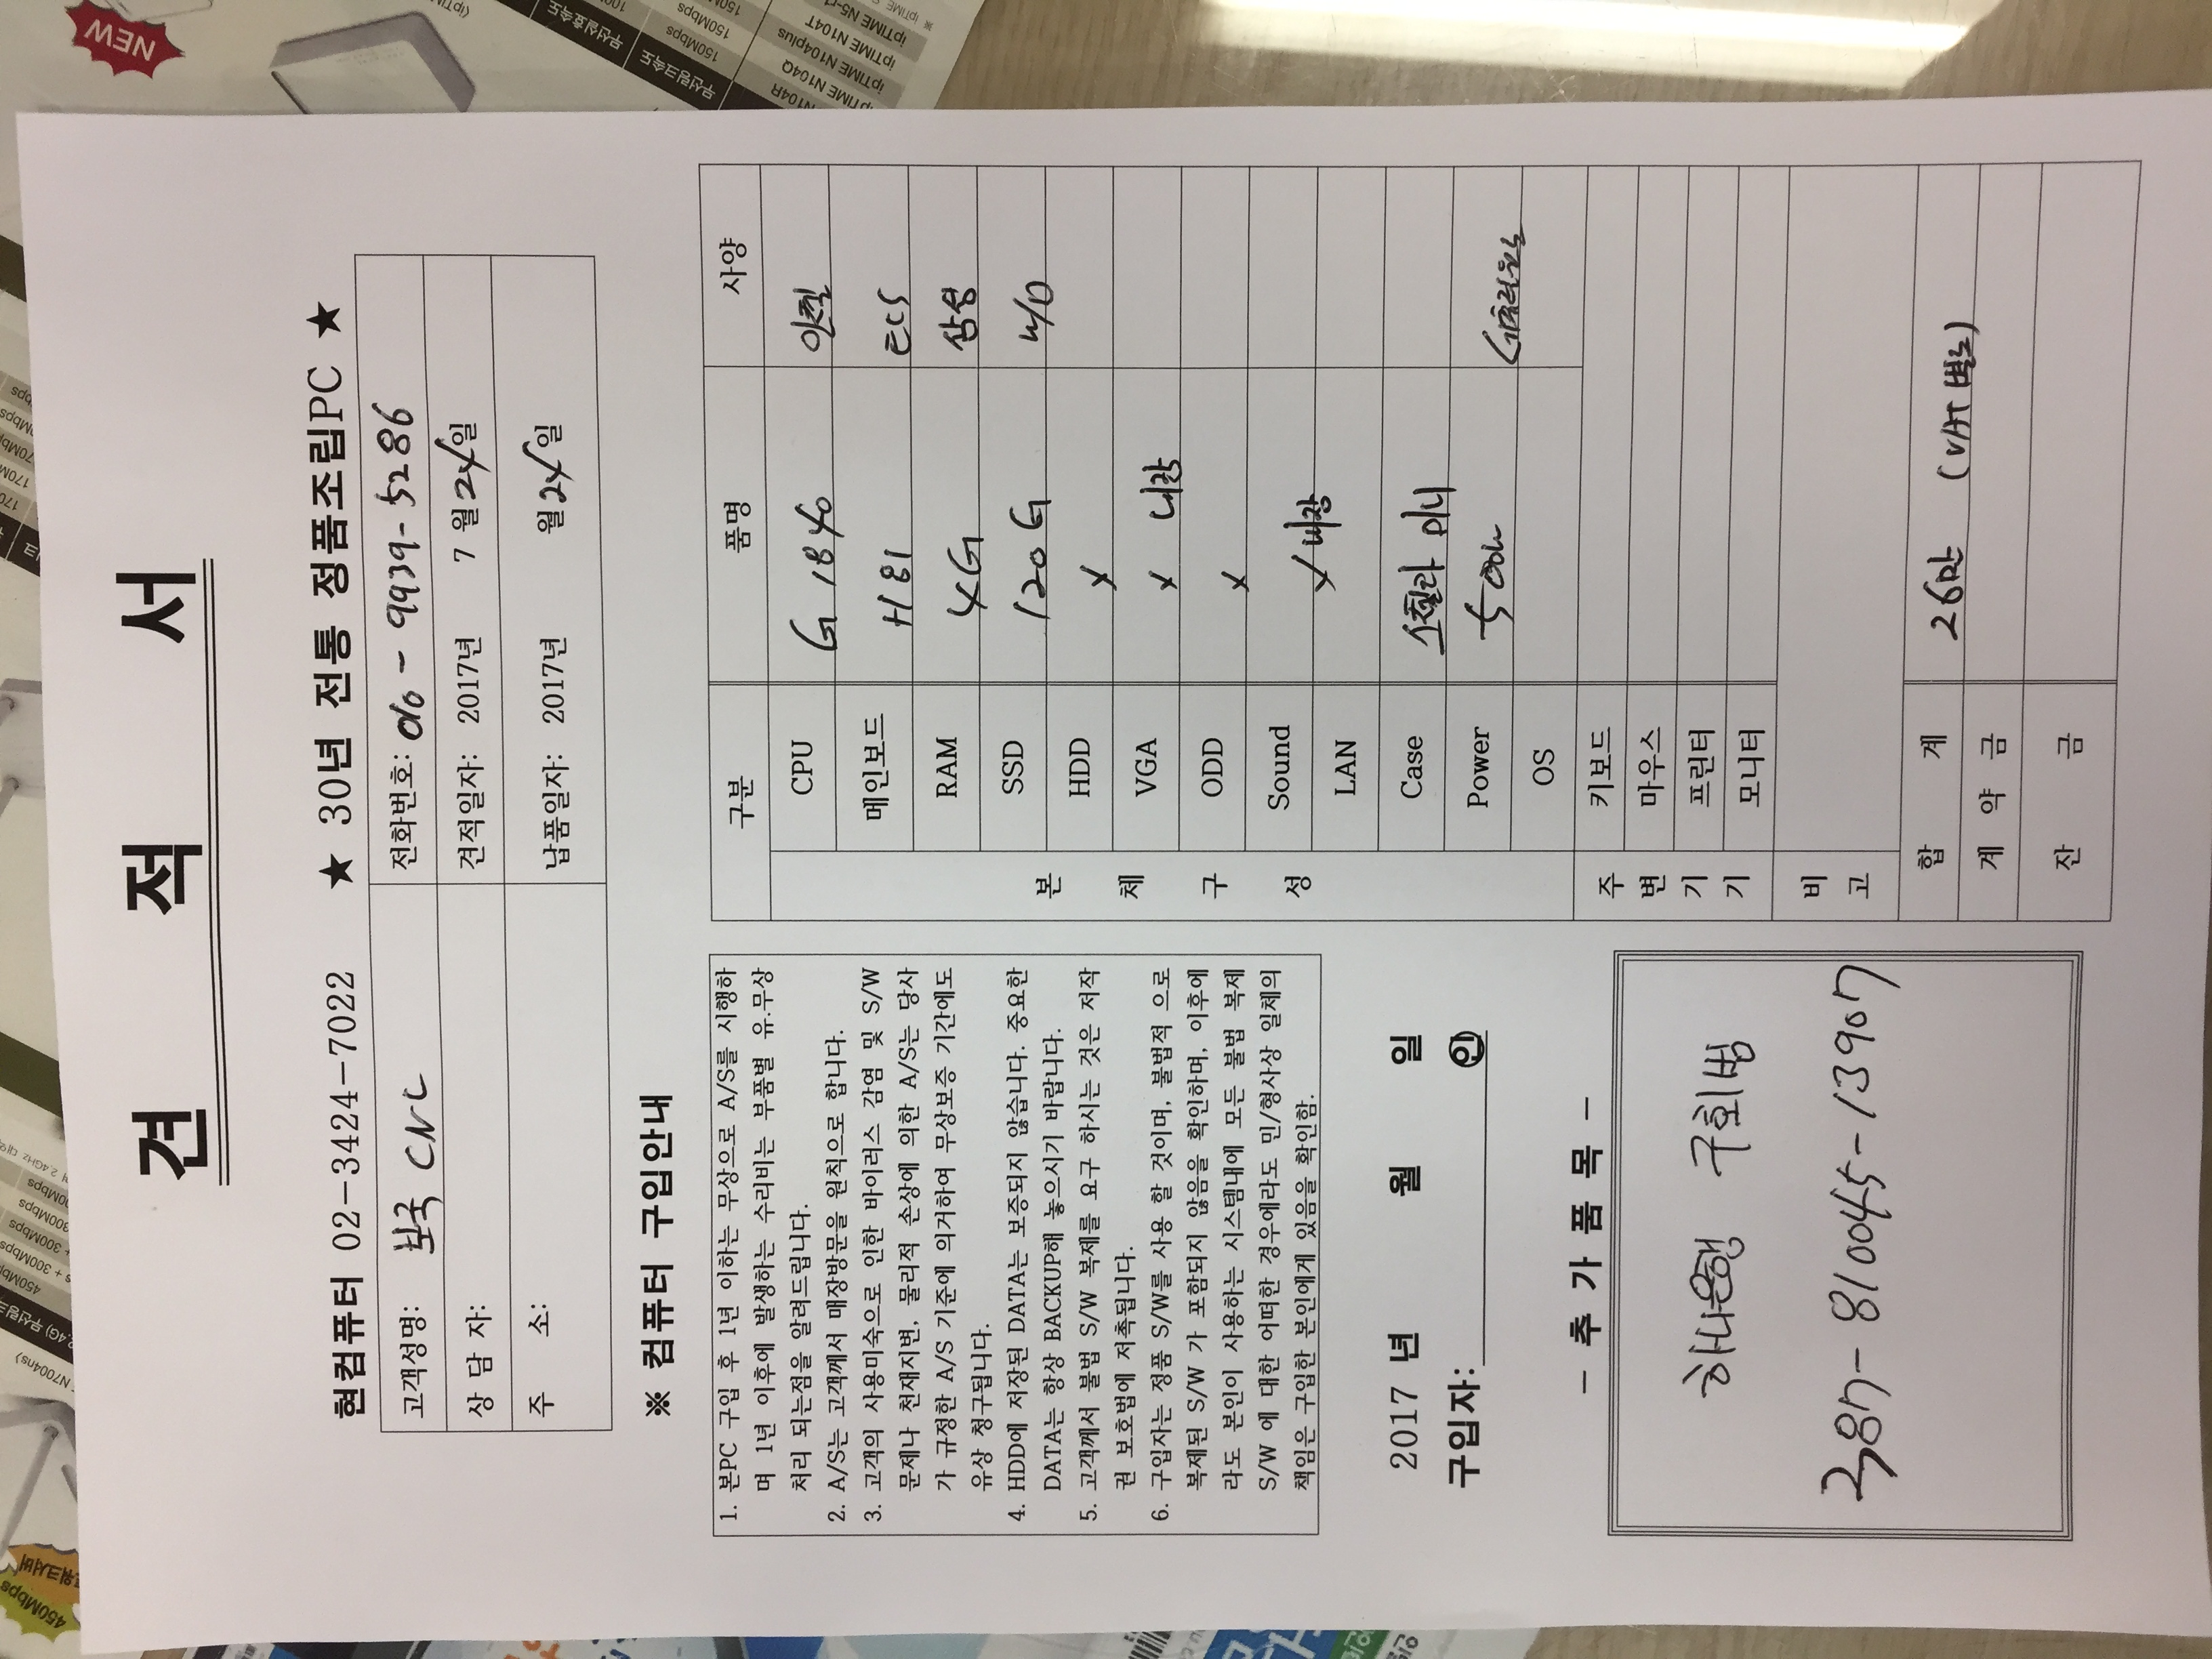 견 적 서
현컴퓨터 02-3424-7022 ★ 30년 전통 정품조립PC ★
고객성명: 보국 CNC 전화번호: 010 - 9939 - 5286
상 담 자: 견적일자: 2017년 7 월 24 일
주 소: 납품일자: 2017년 월 24 일
※ 컴퓨터 구입안내
1. 본PC 구입 후 1년 이하는 무상으로 A/S를 시행하
며 1년 이후에 발생하는 수리비는 부품별 유.무상
처리 되는점을 알려드립니다.
2. A/S는 고객께서 매장방문을 원칙으로 합니다.
3. 고객의 사용미숙으로 인한 바이러스 감염 및 S/W
문제나 천재지변, 물리적 손상에 의한 A/S는 당사
가 규정한 A/S 기준에 의거하여 무상보증 기간에도
유상 청구됩니다.
4. HDD에 저장된 DATA는 보증되지 않습니다. 중요한
DATA는 항상 BACKUP해 놓으시기 바랍니다.
5. 고객께서 불법 S/W 복제를 요구 하시는 것은 저작
권 보호법에 저촉됩니다.
6. 구입자는 정품 S/W를 사용 할 것이며, 불법적 으로
복제된 S/W 가 포함되지 않음을 확인하며, 이후에
라도 본인이 사용하는 시스템내에 모든 불법 복제
S/W 에 대한 어떠한 경우에라도 민/형사상 일체의
책임은 구입한 본인에게 있음을 확인함.
2017 년 월 일
구입자: 인
- 추 가 품 목 -
하나은행 구회범
387-810045-13907
구분 품명 사양
본 체 구 성
CPU G1840 인텔
메인보드 H81 ECS
RAM 4G 삼성
SSD 120G W/D
HDD X
VGA X 내장
ODD X
Sound X 내장
LAN
Case 스칼라 미니
Power 500W
OS
주 변 기 기
키보드
마우스
프린터
모니터
비 고
합 계 26만 (VAT 별도)
계 약 금
잔 금
NEW
ipTIME N104T
ipTIME N104plus
ipTIME N104Q
150Mbps
무선링크속도
450Mbps